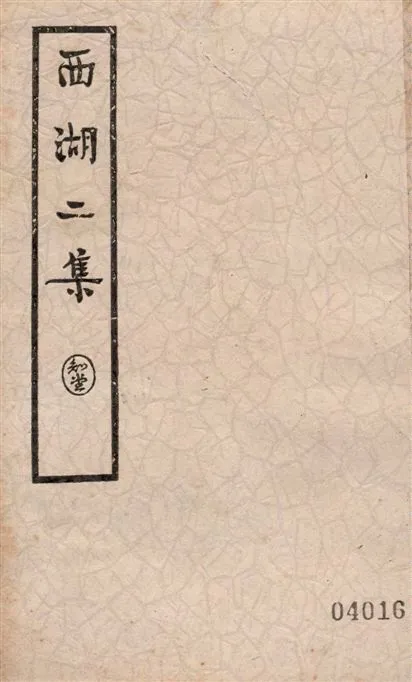 西湖二集
知堂
04016